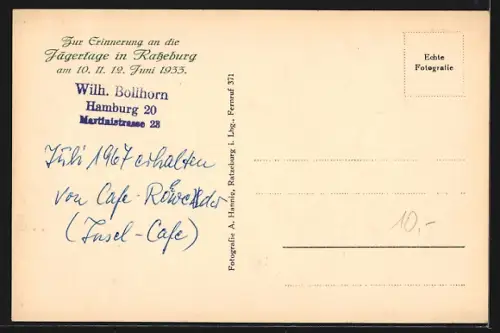 Zur Erinnerung an die
Jägertage in Ratzeburg
am 10. 11. 12. Juni 1933.
Wilh. Bollhorn
Hamburg 20
Martinistrasse 28
Juli 1967 erhalten
von Cafe
(Insel-Cafe)
Fotografie A. Hannig, Ratzeburg i. Lbg., Fernruf 371
Echte
Fotografie
10,-